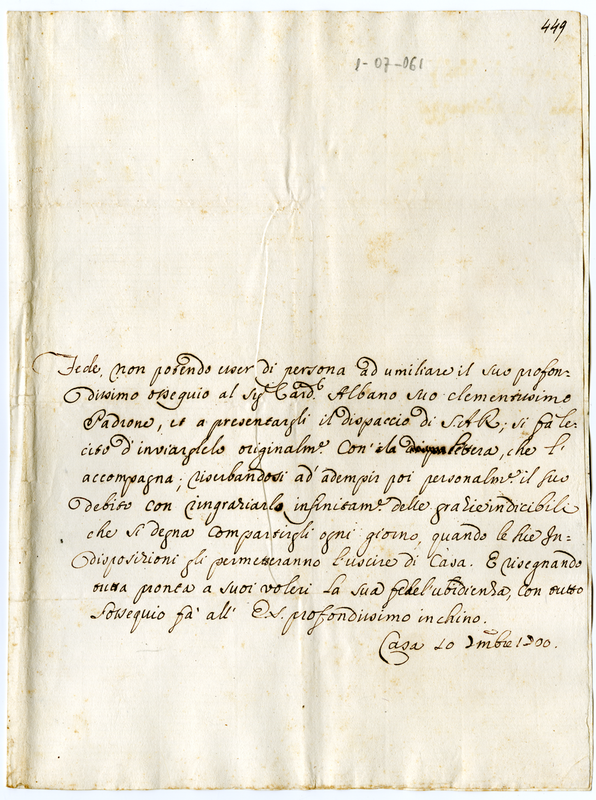 449
1-07-061
Fede, non potendo esser di persona ad umiliare il suo profon=
dissimo ossequio al Sig.r Card. Albano suo clementissimo
Padrone, et a presentargli il dispaccio di S.A.R; si fa le=
cito d'inviarglelo originalm.e Con' la lettera, che l'
accompagna; riserbandosi ad' adempir poi personalm.e il suo
debito con ringraziarlo infinitam.e delle grazie indicibili
che si degna compartirgli ogni giorno, quando le sue In=
disposizioni gli permetteranno l'uscire di Casa. E risegnando
tutta pronta a suoi voleri la sua fedel'ubidienza, con tutto
l'ossequio fa' all' E.S. profondissimo inchino.
Casa 10 mbre 1700.